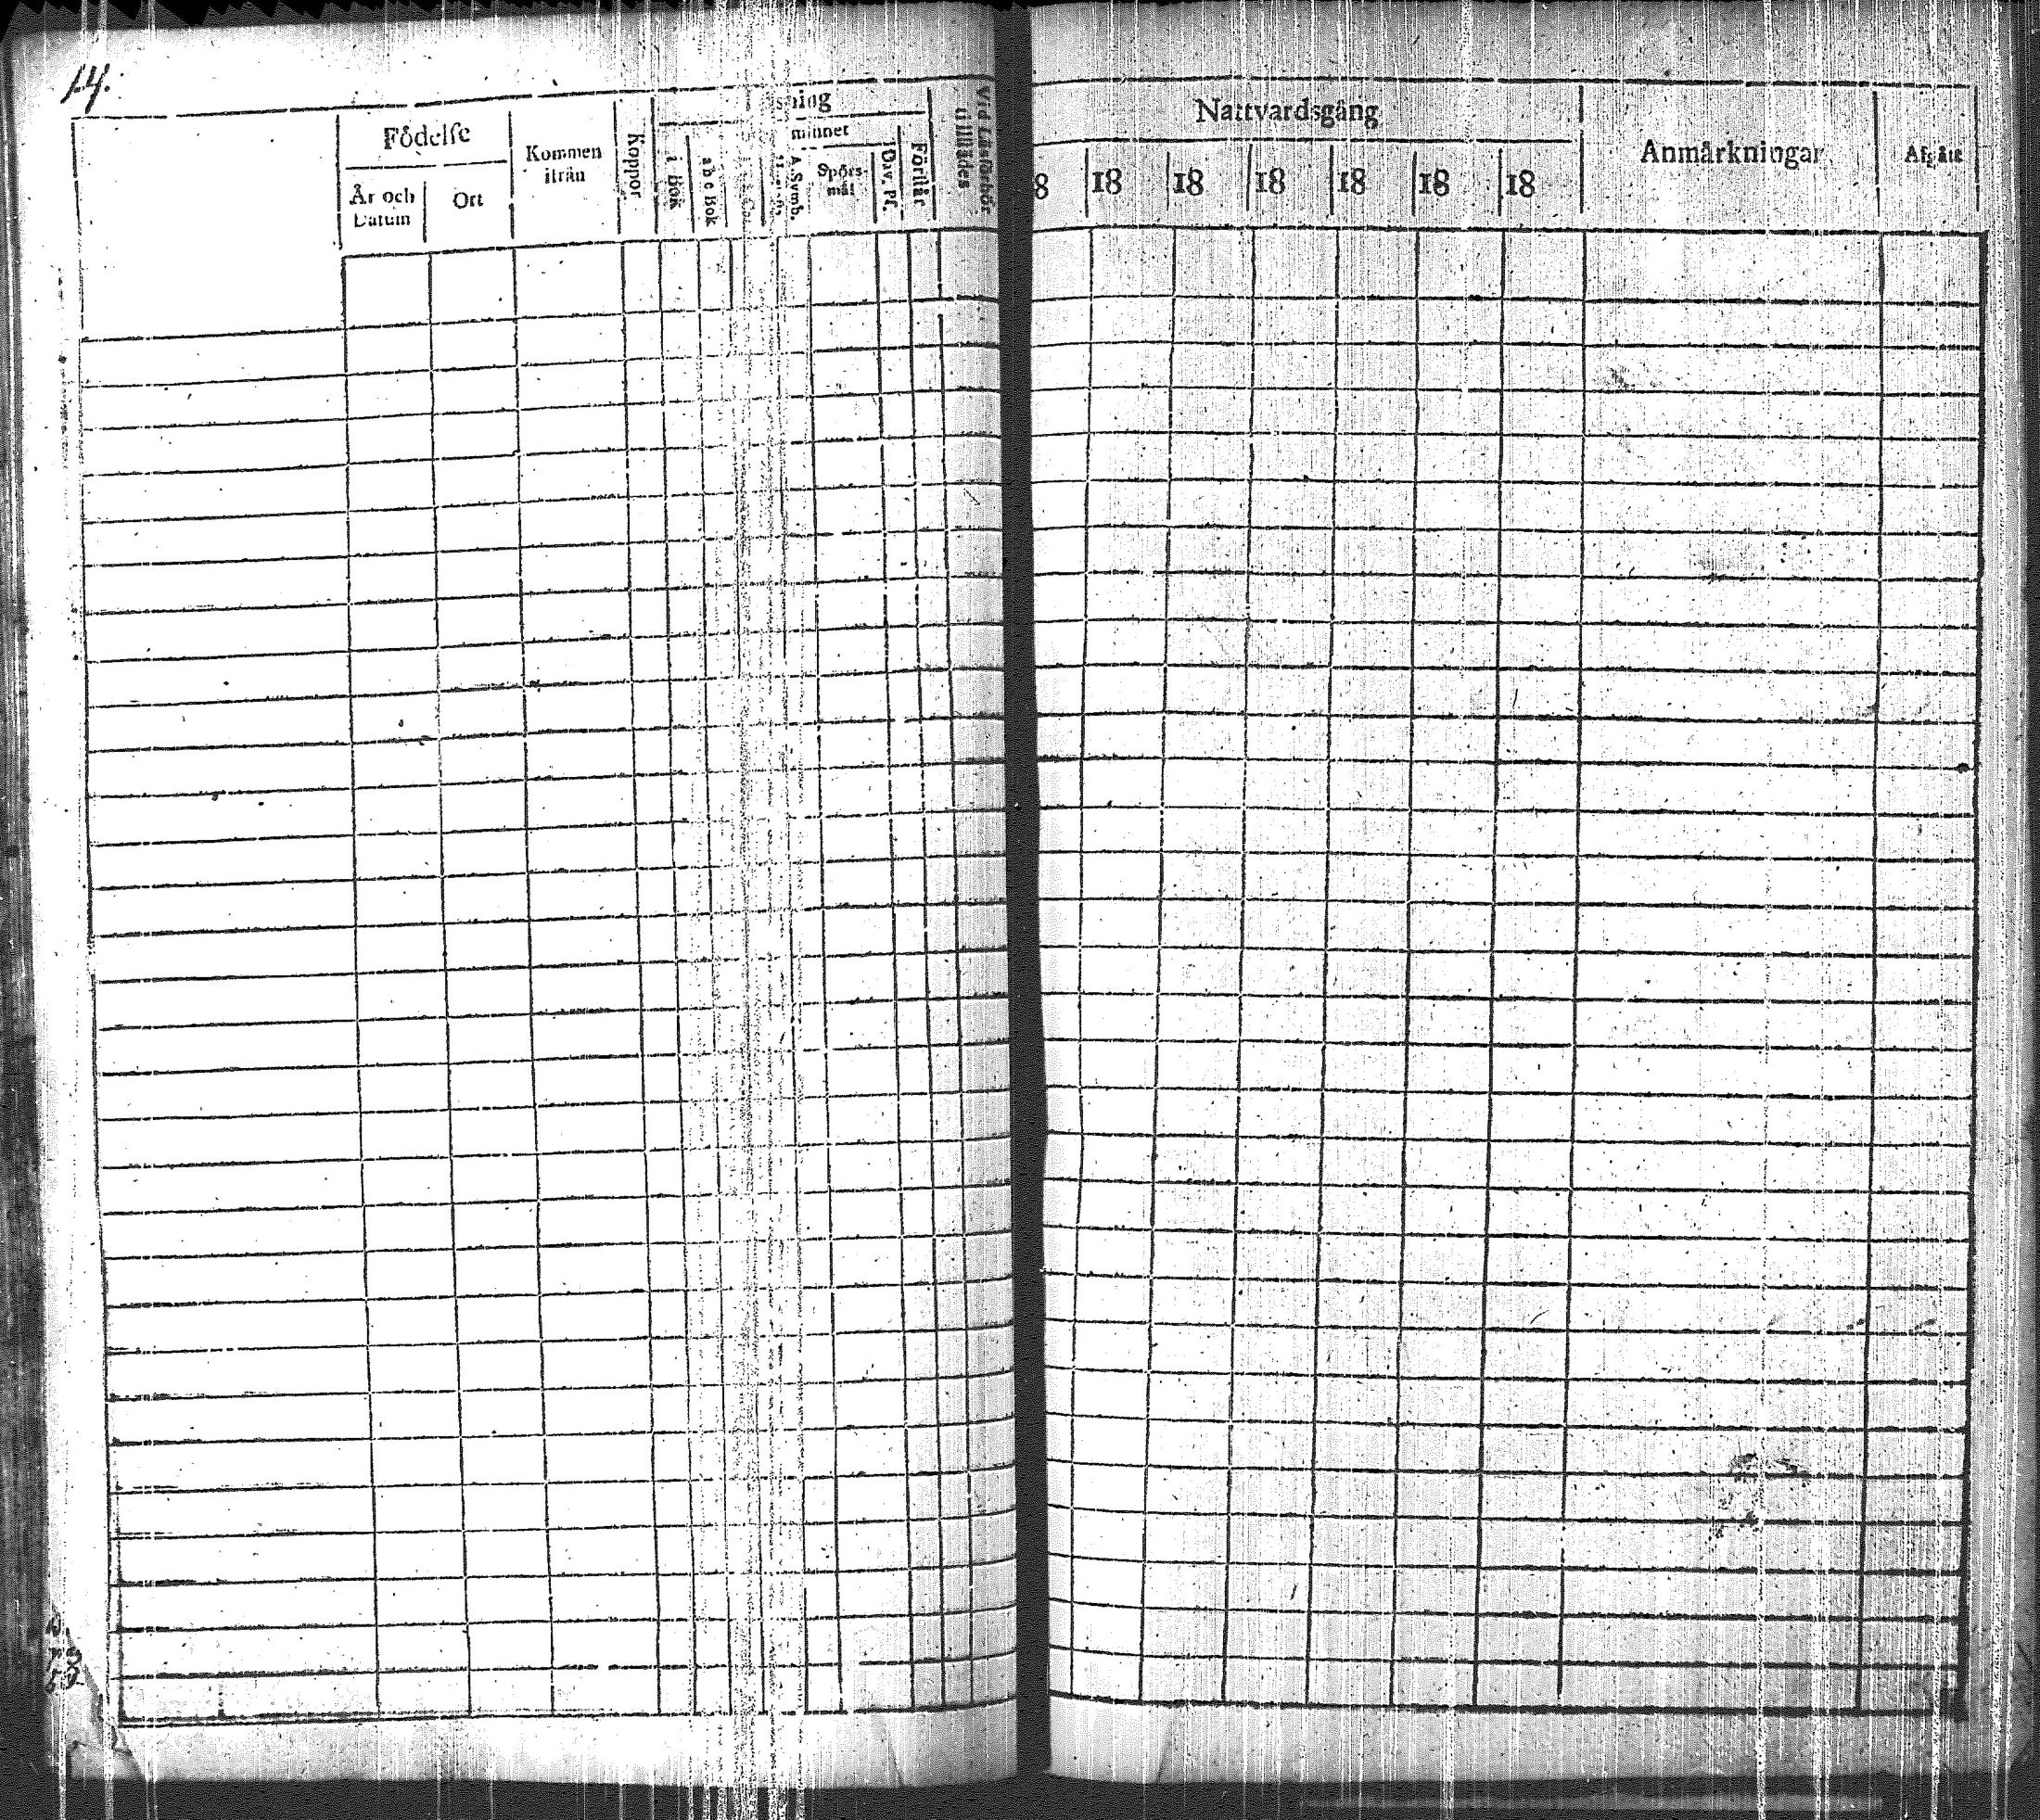 14.
Födelse
År och
Datum
Ort
Kommen
ifrån
Koppor
i Bok
abc Bok
minnet
A. Symb.
Spörs-
mål
Dav. Ps.
Förstår
Vid Läsförhör
tillstädes
Nattvardsgång
18 18 18 18 18 18
Anmärkningar
Afgått